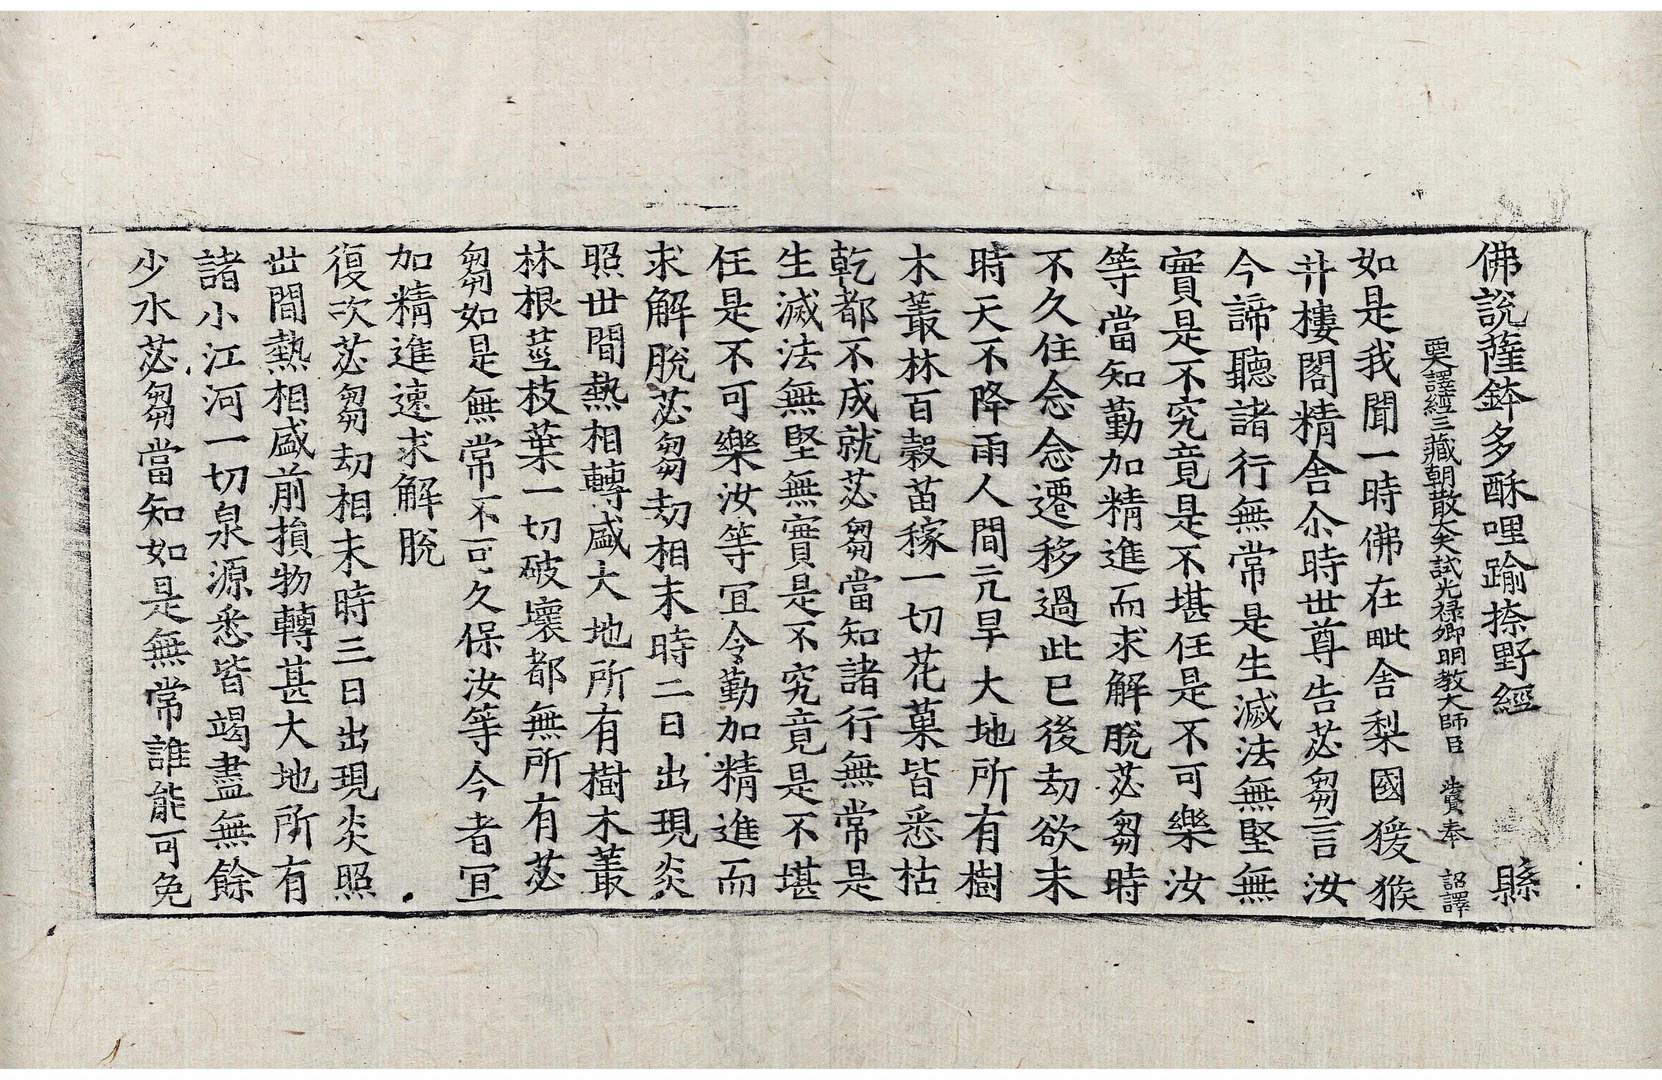 佛說薩鉢多酥哩踰捺野經 縣
西天譯經三藏朝散大夫試光祿卿明教大師臣 法賢奉 詔譯
如是我聞一時佛在毗舍梨國猨猴
井樓閣精舍尒時世尊告苾芻言汝
今諦聽諸行無常是生滅法無堅無
實是不究竟是不堪任是不可樂汝
等當知勤加精進而求解脫苾芻時
不久住念念遷移過此已後劫欲末
時天不降雨人間亢旱大地所有樹
木叢林百穀苗稼一切花菓皆悉枯
乾都不成就苾芻當知諸行無常是
生滅法無堅無實是不究竟是不堪
任是不可樂汝等冝令勤加精進而
求解脫苾芻劫相末時二日出現炎
照世間熱相轉盛大地所有樹木叢
林根莖枝葉一切破壞都無所有苾
芻如是無常不可久保汝等今者冝
加精進速求解脫
復次苾芻劫相末時三日出現炎照
世間熱相盛前損物轉甚大地所有
諸小江河一切泉源悉皆竭盡無餘
少水苾芻當知如是無常誰能可免